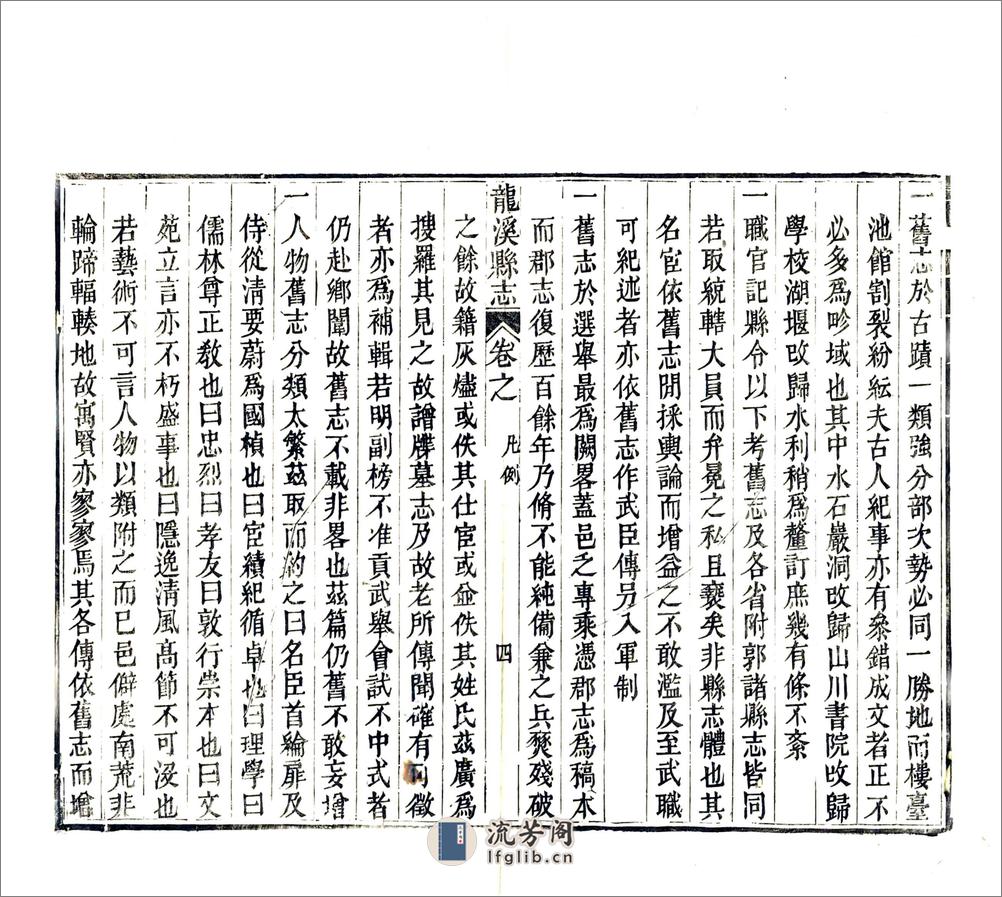 一舊志於古蹟一類強分部次勢必同一勝地而樓臺
池館割裂紛紜夫古人紀事亦有參錯成文者正不
必多為畛域也其中水石巖洞改歸山川書院改歸
學校湖堰改歸水利稍為釐訂庶幾有條不紊
一職官記縣令以下考舊志及各省附郭諸縣志皆同
若取統轄大員而弁冕之私且褻矣非縣志體也其
名宦依舊志閒採輿論而增益之不敢濫及至武職
可紀述者亦依舊志作武臣傳另入軍制
一舊志於選舉最為闕畧蓋邑乏專乘憑郡志為稿本
而郡志復歷百餘年乃脩不能純備兼之兵燹殘破
龍溪縣志 卷之 凡例 四
之餘故籍灰燼或佚其仕宦或並佚其姓氏茲廣為
搜羅其見之故譜牒墓志及故老所傳聞確有可徵
者亦為補輯若明副榜不准貢武舉會試不中式者
仍赴鄉闈故舊志不載非畧也茲篇仍舊不敢妄增
一人物舊志分類太繁茲取而約之曰名臣首綸扉及
侍從清要蔚為國楨也曰宦績紀循卓也曰理學曰
儒林尊正教也曰忠烈曰孝友曰敦行崇本也曰文
苑立言亦不朽盛事也曰隱逸清風高節不可沒也
若藝術不可言人物以類附之而已邑僻處南荒非
輪蹄輻輳地故寓賢亦寥寥焉其各傳依舊志而增
流芳阁
lfglib.cn